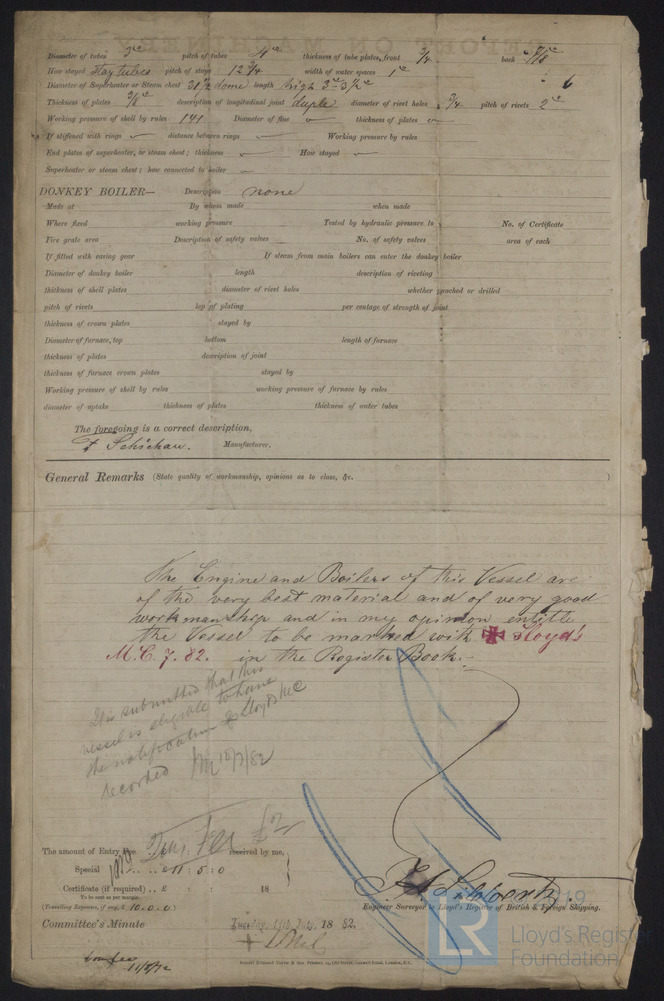 Diameter of tubes 3 in pitch of tubes 4 in thickness of tube plates, front 3/4 back 7/8 in
How stayed Stay tubes pitch of stays 12 3/4 width of water spaces 1 in 6
Diameter of Superheater or Steam chest 31 1/2 dome length high
Thickness of plates 3/8 in description of longitudinal joint duple diameter of rivet holes 3/4 pitch of rivets 2 in
Working pressure of shell by rules 141 Diameter of flue thickness of plates
If stiffened with rings distance between rings Working pressure by rules
End plates of superheater, or steam chest; thickness How stayed
Superheater or steam chest; how connected to boiler
DONKEY BOILER— Description none
Made at By whom made when made
Where fixed working pressure Tested by hydraulic pressure to No. of Certificate
Fire grate area Description of safety valves No. of safety valves area of each
If fitted with easing gear If steam from main boilers can enter the donkey boiler
Diameter of donkey boiler length description of riveting
thickness of shell plates diameter of rivet holes whether punched or drilled
pitch of rivets lap of plating per centage of strength of joint
thickness of crown plates stayed by
Diameter of furnace, top bottom length of furnace
thickness of plates description of joint
thickness of furnace crown plates stayed by
Working pressure of shell by rules working pressure of furnace by rules
diameter of uptake thickness of plates thickness of water tubes
The foregoing is a correct description,
F Schichau. Manufacturer.
General Remarks (State quality of workmanship, opinions as to class, &c. )
The Engine and Boilers of this Vessel are
of the very best material and of very good
workmanship and in my opinion entitle
the Vessel to be marked with ✠ Lloyd's
M.C. 7. 82. in the Register Book.
It is submitted that this
vessel is eligible to have
the notification ✠ Lloyds MC
recorded 10/7/82
The amount of Entry Fee £2 received by me,
Special £11 : 5 : 0
Certificate (if required) .. £ : : 18
To be sent as per margin.
(Travelling Expenses, if any, £ 10.0.0)
Engineer Surveyor to Lloyd's Register of British & Foreign Shipping.
Committee's Minute Tuesday, 11th July, 18 82.
11/7/82
LR
Lloyd's Register
Foundation
2019